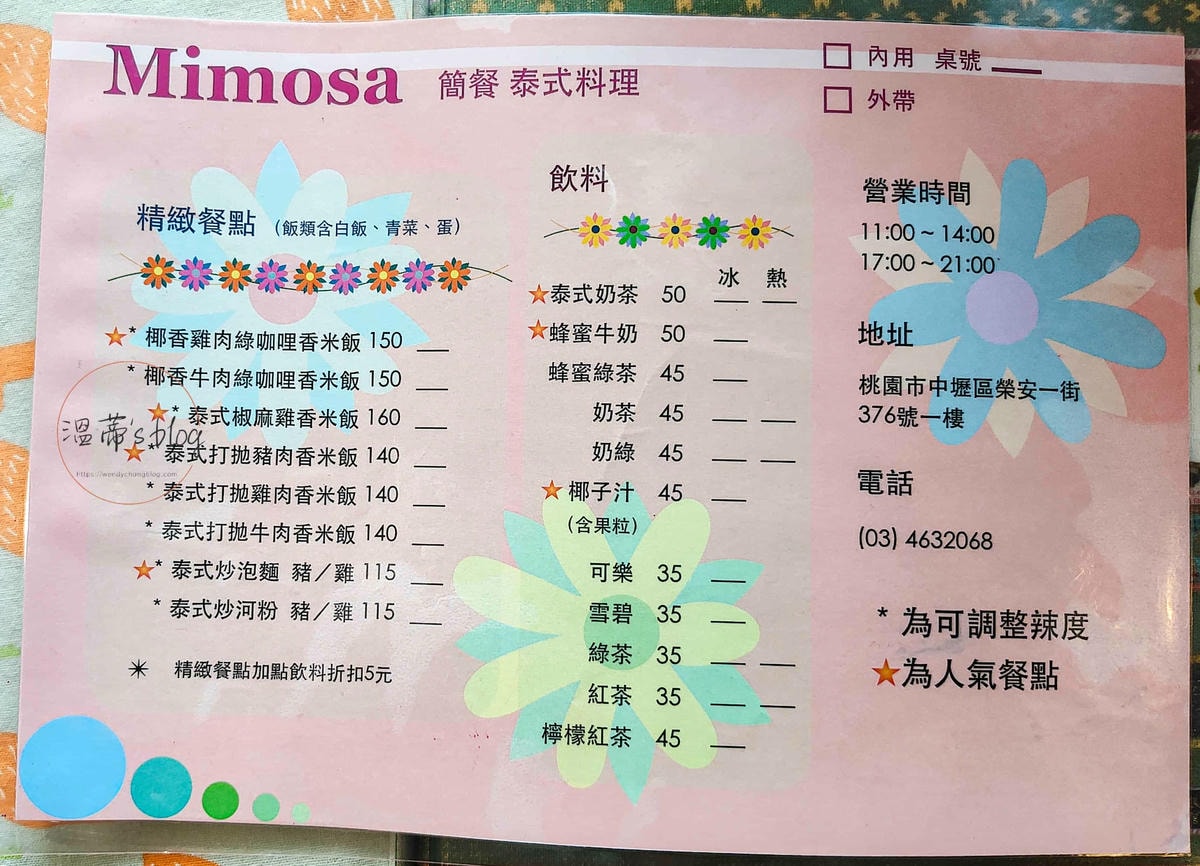 Mimosa 簡餐 泰式料理
□ 內用 桌號
□ 外帶
精緻餐點 (飯類含白飯、青菜、蛋)
★* 椰香雞肉綠咖哩香米飯 150
* 椰香牛肉綠咖哩香米飯 150
★* 泰式椒麻雞香米飯 160
★* 泰式打拋豬肉香米飯 140
* 泰式打拋雞肉香米飯 140
* 泰式打拋牛肉香米飯 140
★* 泰式炒泡麵 豬／雞 115
* 泰式炒河粉 豬／雞 115
✳ 精緻餐點加點飲料折扣5元
溫蒂's blog
https://wendychangblog.com
飲料
冰 熱
★泰式奶茶 50
★蜂蜜牛奶 50
蜂蜜綠茶 45
奶茶 45
奶綠 45
★椰子汁 45
(含果粒)
可樂 35
雪碧 35
綠茶 35
紅茶 35
檸檬紅茶 45
營業時間
11:00 ~ 14:00
17:00 ~ 21:00
地址
桃園市中壢區榮安一街
376號一樓
電話
(03) 4632068
* 為可調整辣度
★為人氣餐點